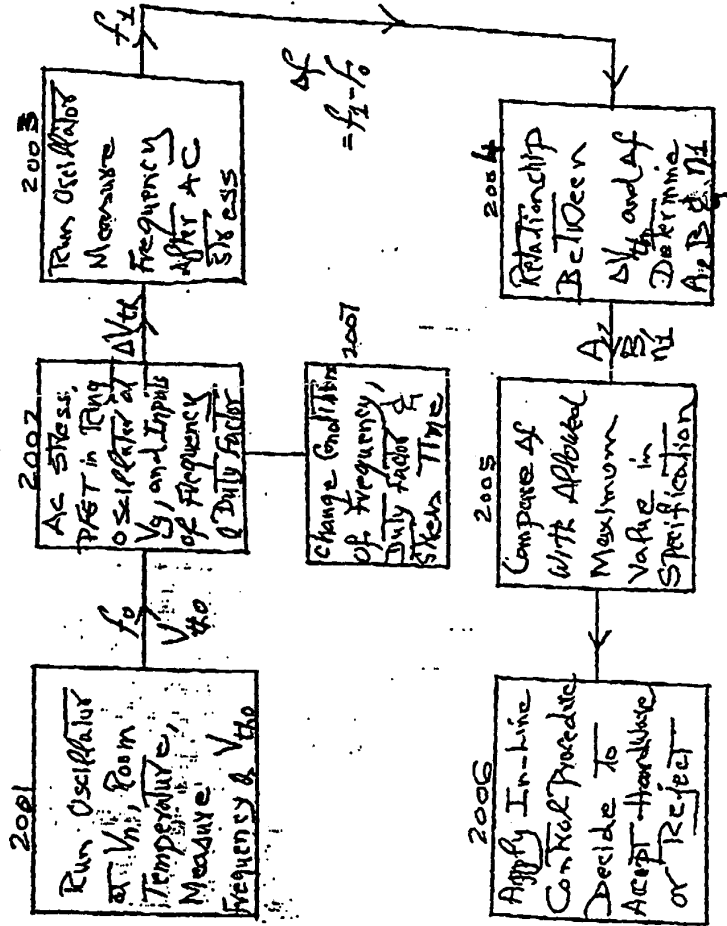 2001
Run Oscillator
at Vn, Room
Temperature,
Measure
Frequency & Vtho
f0
Vtho
2002
AC Stress,
PFET in Ring
Oscillator at
Vg, and Inputs
of Frequency
& Duty Factor
ΔVth
2003
Run Oscillator
Measure
Frequency
After AC
Stress
f1
Δf
=f1-f0
2007
Change Conditions
of Frequency,
Duty Factor &
Stress Time
2004
Relationship
Between
ΔVth and Δf
Determine
A, B & n1
A,
B,
n1
2005
Compare Δf
With Allowed
Maximum
Value in
Specification
2006
Apply In-Line
Control Procedure
Decide To
Accept Hardware
or Reject